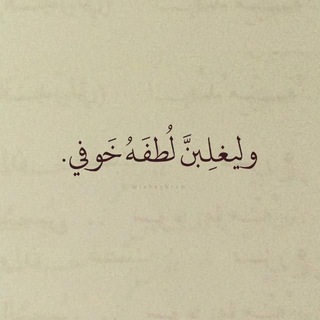 وليغلِبنَّ لُطفَهُ خَوفي.